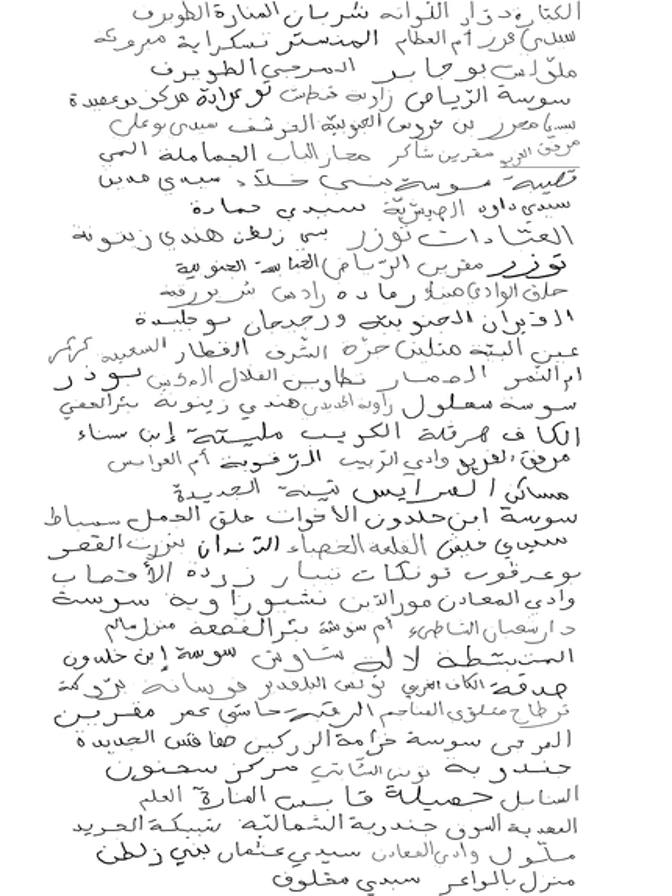 الكتار دوار اللواته شربان المنارة الطويرف
سيدي محرز أم العظام المنستر تسكراية مبروكة
ملولش بوجابر المرجى الطويرف
سوسة الرياض زاوية قنطش بوعرادة مركز بوعصيدة
سيدي محرز بن عروس الجنوبية الخرشف سيدي بوعلي
مرفق الفريد مقرين شاكر مجاز الباب الحماملة
قصيبة سوسة بني خلاد سيدي مدين
سيدي داود الحبشية سيدي حمادة
العتادات توزر بني زلطن هندي زيتونة
توزر مقرين الرياض العباسة الجنوبية
حلق الوادي رمادة رادس شربورقبة
القيروان الجنوبية ورجيجان بوجليدة
عين البية منلين حزة الشرف القطار السعيدة
أم الثمر تطاوين الفلال بوذر
سوسة سهلول زاوية الجديدي هندي زيتونة بئر الحفي
الكاف هرقلة الكريب مليتة إبن سناء
مرفق الفريد وادي الزبيب الزقوبة أم العرايس
مساكن العرايس تينة الجديدة
سوسة ابن خلدون الأخوات حلق الجمل سمباط
سيدي خليفة القلعة الخصباء بنزرت القصر
بوعرقوب تونكات نيبار زردة الأقصاب
وادي المعادن نور الدين نشيو زاوية سوسة
دار شعبان الشاطىء أم سوشة بئر القصعة منزل سالم
المتبسطة لالة شاوش سوسة إبن خلدون
صدقة الكاف الغربي تونس البلفدير فوسانة
قرطاج معتوق المناجم الرقبة حاسي عمر مقرين
المرجى سوسة خزامة صفاقس الجديدة
جندوبة تونس مركز سحنون
السنابل جميلة قابس المنارة العلم
المهدية جندوبة الشمالية شبيكة الجريد
ملول وادي المعادن سيدي عثمان بني زلطن
منزل بالواعر سيدي مخلوف